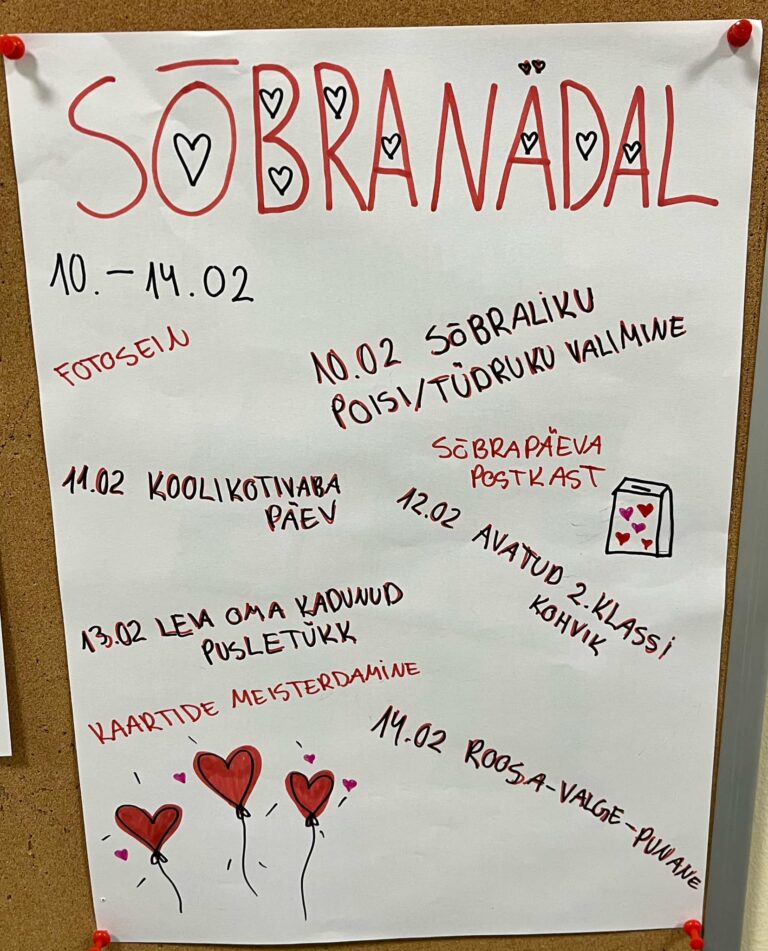 SÕBRANÄDAL
10.-14.02
FOTOSEIN
10.02 SÕBRALIKU
POISI/TÜDRUKU VALIMINE
SÕBRAPÄEVA
POSTKAST
11.02 KOOLIKOTIVABA
PÄEV
12.02 AVATUD 2.KLASSI
KOHVIK
13.02 LEIA OMA KADUNUD
PUSLETÜKK
KAARTIDE MEISTERDAMINE
14.02 ROOSA-VALGE-PUNANE